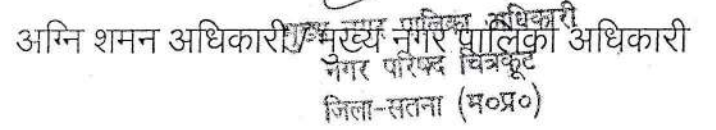 अग्नि शमन अधिकारी / मुख्य नगर पालिका अधिकारी
मुख्य नगर पालिका अधिकारी
नगर परिषद चित्रकूट
जिला-सतना (म०प्र०)